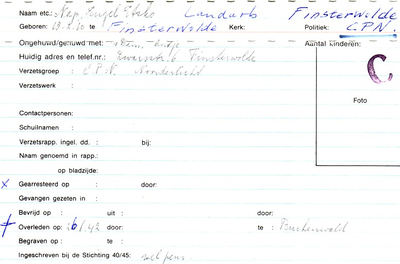 Naam etc.: Nap, Engel Eltko Landarb Finsterwolde
Geboren: 10 te Finsterwolde Kerk: Politiek: C.P.N.
Ongehuwd/gehuwd met: Aantal kinderen:
Huidig adres en telef.nr.: Finsterwolde
Verzetsgroep : C.P.N. Noorderlicht
C.
Verzetswerk :
Foto
Contactpersonen:
Schuilnaam :
Verzetsrapp. ingel. dd. : bij:
Naam genoemd in rapp.:
op bladzijde:
x Gearresteerd op : door:
Gevangen gezeten in :
Bevrijd op : uit : door:
Overleden op: 26.1.42 door: te : Buchenwald
Begraven op : te :
Ingeschreven bij de Stichting 40/45: